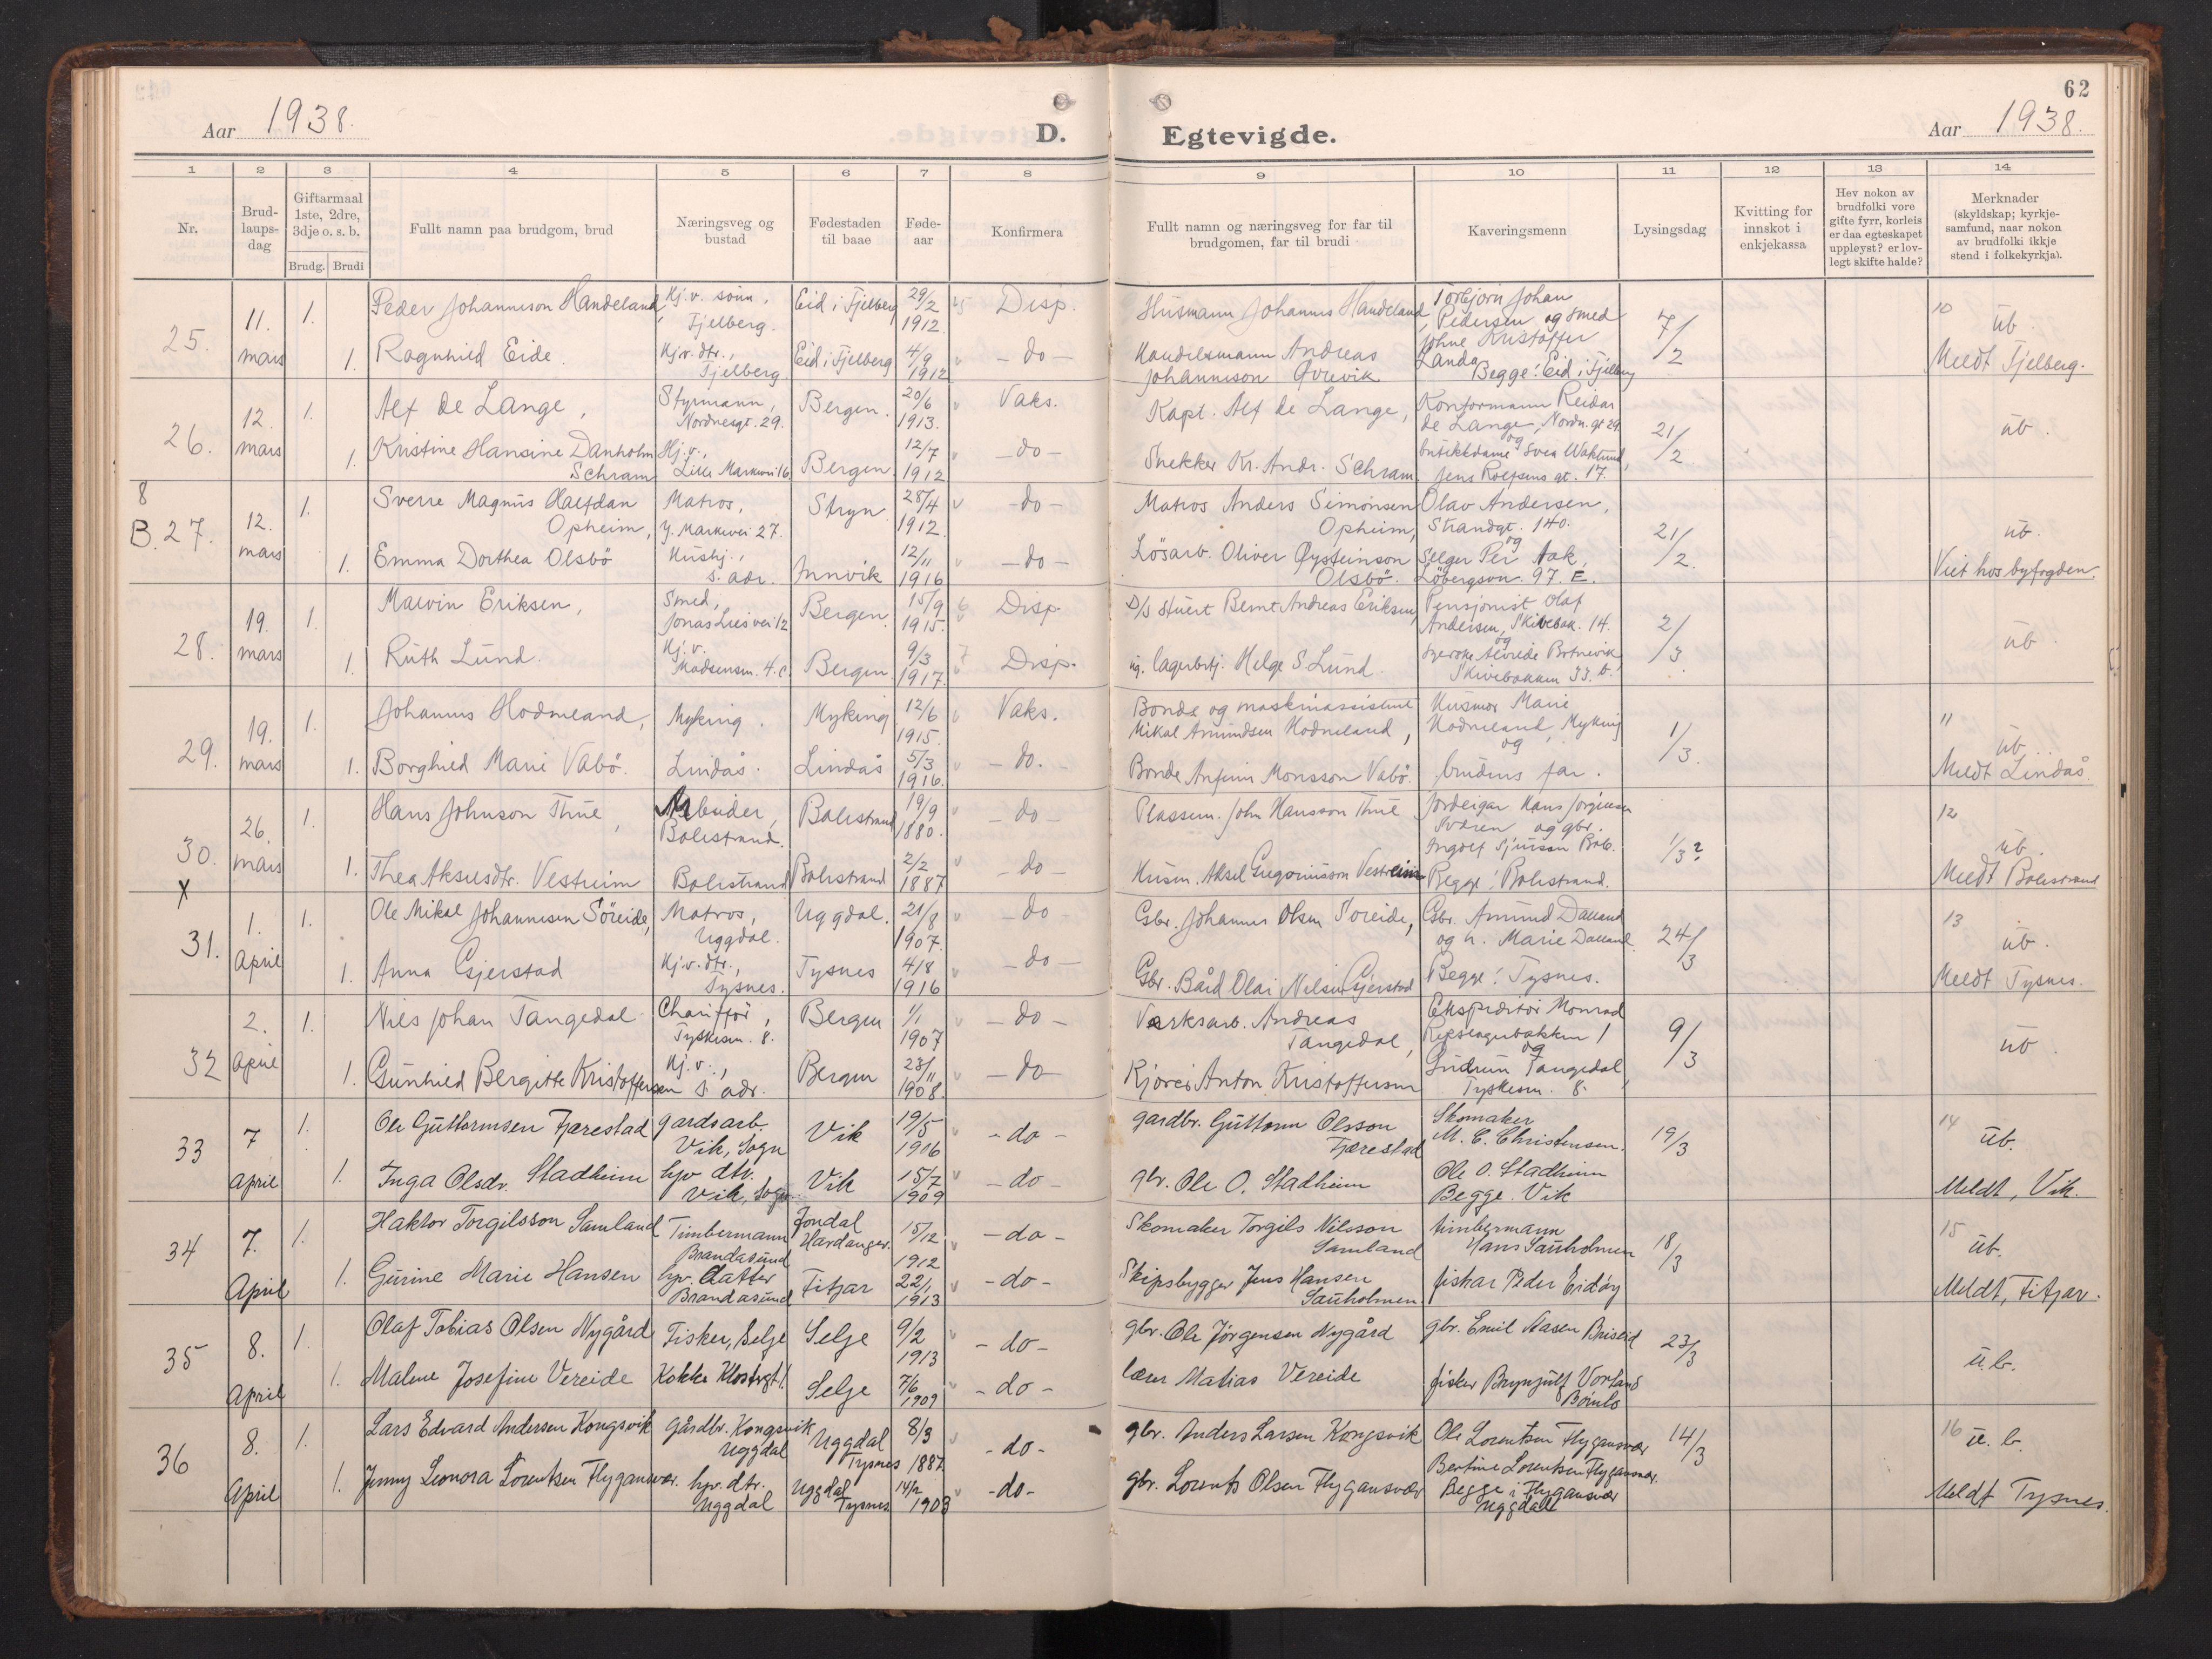 62
Aar 1938.
D.
Egtevigde.
Aar 1938.
1 2 3 4 5 6 7 8 9 10 11 12 13 14
Nr.
Brud-
laups-
dag
Giftarmaal
1ste, 2dre,
3dje o. s. b.
Brudg. Brudi
Fullt namn paa brudgom, brud
Næringsveg og
bustad
Fødestaden
til baae
Føde-
aar
Konfirmera
Fullt namn og næringsveg for far til
brudgomen, far til brudi
Kaveringsmenn
Lysingsdag
Kvitting for
innskot i
enkjekassa
Hev nokon av
brudfolki vore
gifte fyrr, korleis
er daa egteskapet
uppløyst? er lov-
legt skifte halde?
Merknader
(skyldskap; kyrkje-
samfund, naar nokon
av brudfolki ikkje
stend i folkekyrkja).
25. 11. mars
1. Peder Johannison Handeland, Hj.v. sønn, Fjelberg. Eid i Fjelberg 29/2 1912. Disp.
Husmann Johannes Handeland, Torbjørn Johan
Pedersen og smed
7/2 10 ub.
1. Ragnhild Eide. Hj.v. dtr., Fjelberg. Eid i Fjelberg 4/9 1912 – do –
Handelsmann Andreas
Johannison Øvrevik
Johne Kristoffer
Landa
Begge: Eid i Fjelberg
Meldt Fjelberg.
26. 12. mars
1. Alf de Lange, Styrmann, Nordnesgt. 29. Bergen. 20/6 1913. Vaks.
Kapt. Alf de Lange, Kontormann Reidar
de Lange, Nordn.gt 29.
og
21/2 ub.
1. Kristine Hansine Danholm
Schram Hj.v., Lille Markevei 16 Bergen 12/7 1912 – do –
Snekker Kr. Andr. Schram. butikkdame Svea Waklund,
Jens Rolfsens gt. 17.
8
B. 27. 12. mars
1. Sverre Magnus Halfdan
Opheim, Matros, Y. Markevei 27. Stryn 28/4 1912. – do –
Matros Anders Simonsen
Opheim, Olav Andersen,
Strandgt. 140.
og
21/2. ub.
1. Emma Dorthea Olsbö Hushj., s. adr. Innvik 12/11 1916 – do –
Lösarb. Oliver Øysteinson
Olsbö. Selger Per Aak,
Löbergsvn. 97. E.
Viet hos byfogden.
28. 19. mars
1. Malvin Eriksen, Smed, Jonas Lies vei 12 Bergen. 15/9 1915. 6 Disp.
D/s stuert Bernt Andreas Eriksen, Pensjonist Olaf
Andersen, Skivebak. 14.
og
2/3 ub.
1. Ruth Lund. Hj.v. Madsensm. 4.c. Bergen 9/3 1917. 7 Disp.
ug. lagerbetj. Helge S. Lund.
Skivebakken 33.b.
29. 19. mars
1. Johannes Hodneland, Myking. Myking 12/6 1915. Vaks.
Bonde og maskinassistent
Mikal Amundsen Hodneland, Husmor Marie
Hodneland, Myking
og
1/3. 11 ub.
1. Borghild Marie Vabö. Lindås. Lindås 5/3 1916. – do. –
Bonde Anfinn Monsson Vabö. brudens far.
Meldt Lindås.
30. 26. mars
1. Hans Johnson Thue, Arbeider, Balestrand. Balestrand 19/9 1880. – do –
Plassem. John Hansson Thue Jordeigar Hans Jörgensen
Sværen og gbr.
Ingolf Sjursson Bale.
1/3? 12 ub.
1. Thea Akselsdtr. Vestreim Balestrand Balestrand 2/2 1887 – do –
Husm. Aksel Gregoriusson Vestreim Begge: Balestrand.
Meldt Balestrand
X
31. 1. April
1. Ole Mikal Johannesen Söreide, Matros, Uggdal. Uggdal. 21/8 1907. – do –
Gbr. Johannes Olsen Söreide, Gbr. Amund Dalland
og h. Marie Dalland.
24/3 13 ub.
1. Anna Gjerstad Hj.v. dtr., Tysnes. Tysnes 4/8 1916 – do –
Gbr. Bård Olai Nilsen Gjerstad Begge: Tysnes.
Meldt Tysnes.
32 2. April
1. Nils Johan Tangedal Chaufför, Tyskesm. 8. Bergen 1/1 1907 – do –
Verksarb. Andreas
Tangedal, Ekspeditör Monrad
Repslagerbakken 1
og
9/3 ub.
1. Gunhild Bergitte Kristoffersen Hj.v., s. adr. Bergen 23/11 1908. – do –
Kjörer Anton Kristoffersen Gudrun Tangedal,
Tyskesm. 8.
33 7 April
1. Ole Guttormsen Fjærestad gardsarb. Vik, Sogn Vik 19/5 1916 – do –
gardbr. Guttorm Olsson
Fjærestad Skomaker
M. C. Christensen.
19/3 14 ub.
1. Inga Olsdr. Stadheim hjv dtr. Vik, Sogn. Vik 15/7 1909 – do –
gbr. Ole O. Stadheim Ole O. Stadheim
Begge Vik
Meldt, Vik.
34 7. April
1. Haktor Torgilsson Samland Timbermann Brandasund Jondal Hardanger. 15/12 1912 – do –
Skomaker Torgils Nilsson
Samland timbermann
Hans Sauholmen
18/3 15 ub.
1. Gurine Marie Hansen hjv. datter Brandasund Fitjar 22/1 1913 – do –
Skipsbygger Jens Hansen
Sauholmen. fiskar Peder Eidöy
Meldt, Fitjar.
35 8. April
1. Olaf Tobias Olsen Nygård Fisker, Selje Selje 9/2 1913 – do –
gbr. Ole Jörgensen Nygård gbr. Emil Aasen Briseid
23/3 u.b.
1. Malene Josefine Vereide Kokke Klostergt 1. Selje 7/6 1909 – do –
lærer Matias Vereide fisker Brynjulf Vorland
Bömlo
36 8. April
1. Lars Edvard Andersen Kongsvik gårdbr. Kongsvik Uggdal Uggdal Tysnes 8/3 1887 – do –
gbr. Anders Larsen Kongsvik Ole Lorentsen Flygansvær
14/3 16 u. b.
1. Jenny Leonora Lorentsen Flygansvær. hjv. dtr. Uggdal Uggdal Tysnes 14/2 1903 – do –
gbr. Lorents Olsen Flygansvær Bertine Lorentsen Flygansvær.
Begge i Flygansvær
Uggdal
Meldt Tysnes.